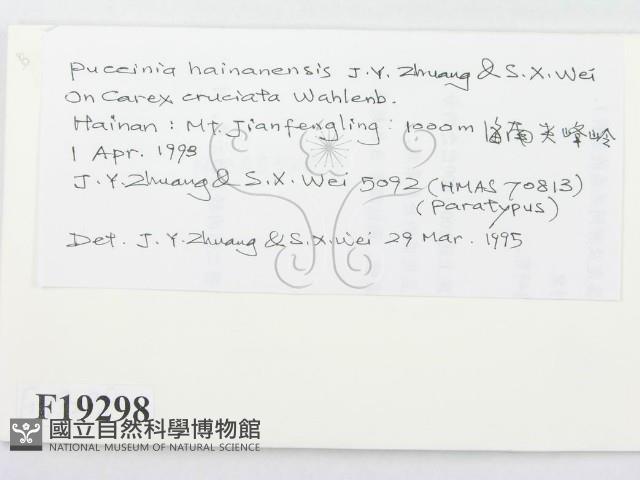 Puccinia hainanensis J.Y. Zhuang & S.X. Wei
On Carex cruciata Wahlenb.
Hainan: Mt. Jianfengling: 1000m 海南尖峰岭
1 Apr. 1993
J.Y. Zhuang & S.X. Wei 5092 (HMAS 70813)
(Paratypus)
Det. J.Y. Zhuang & S.X. Wei 29 Mar. 1995
F19298
國立自然科學博物館
NATIONAL MUSEUM OF NATURAL SCIENCE